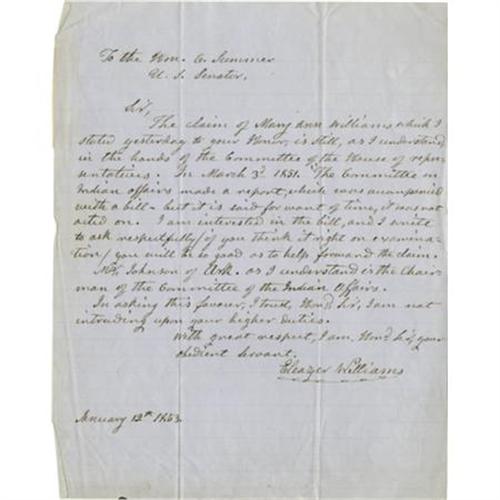 To the Hon. C. Sumner
U. S. Senator.
Sir,
The claim of Mary Ann Williams which I
stated yesterday to your Honor, is still, as I understand
in the hands of the Committee of the House of repre
sentatives. In March 3d 1851. The Committee on
Indian affairs made a report, which was accompanied
with a bill - but it is said for want of time, it was not
acted on. I am interested in the bill, and I write
to ask respectfully / if you think it right on examina-
tion / you will be so good as to help forward the claim.
Mr. Johnson of Ark. as I understand is the Chair-
man of the Committee of the Indian Affairs.
In asking this favour, I trust, Hond Sir, I am not
intruding upon your higher duties.
With great respect, I am, Hond Sir, your
obedient servant.
Eleazer Williams
January 12th 1853.